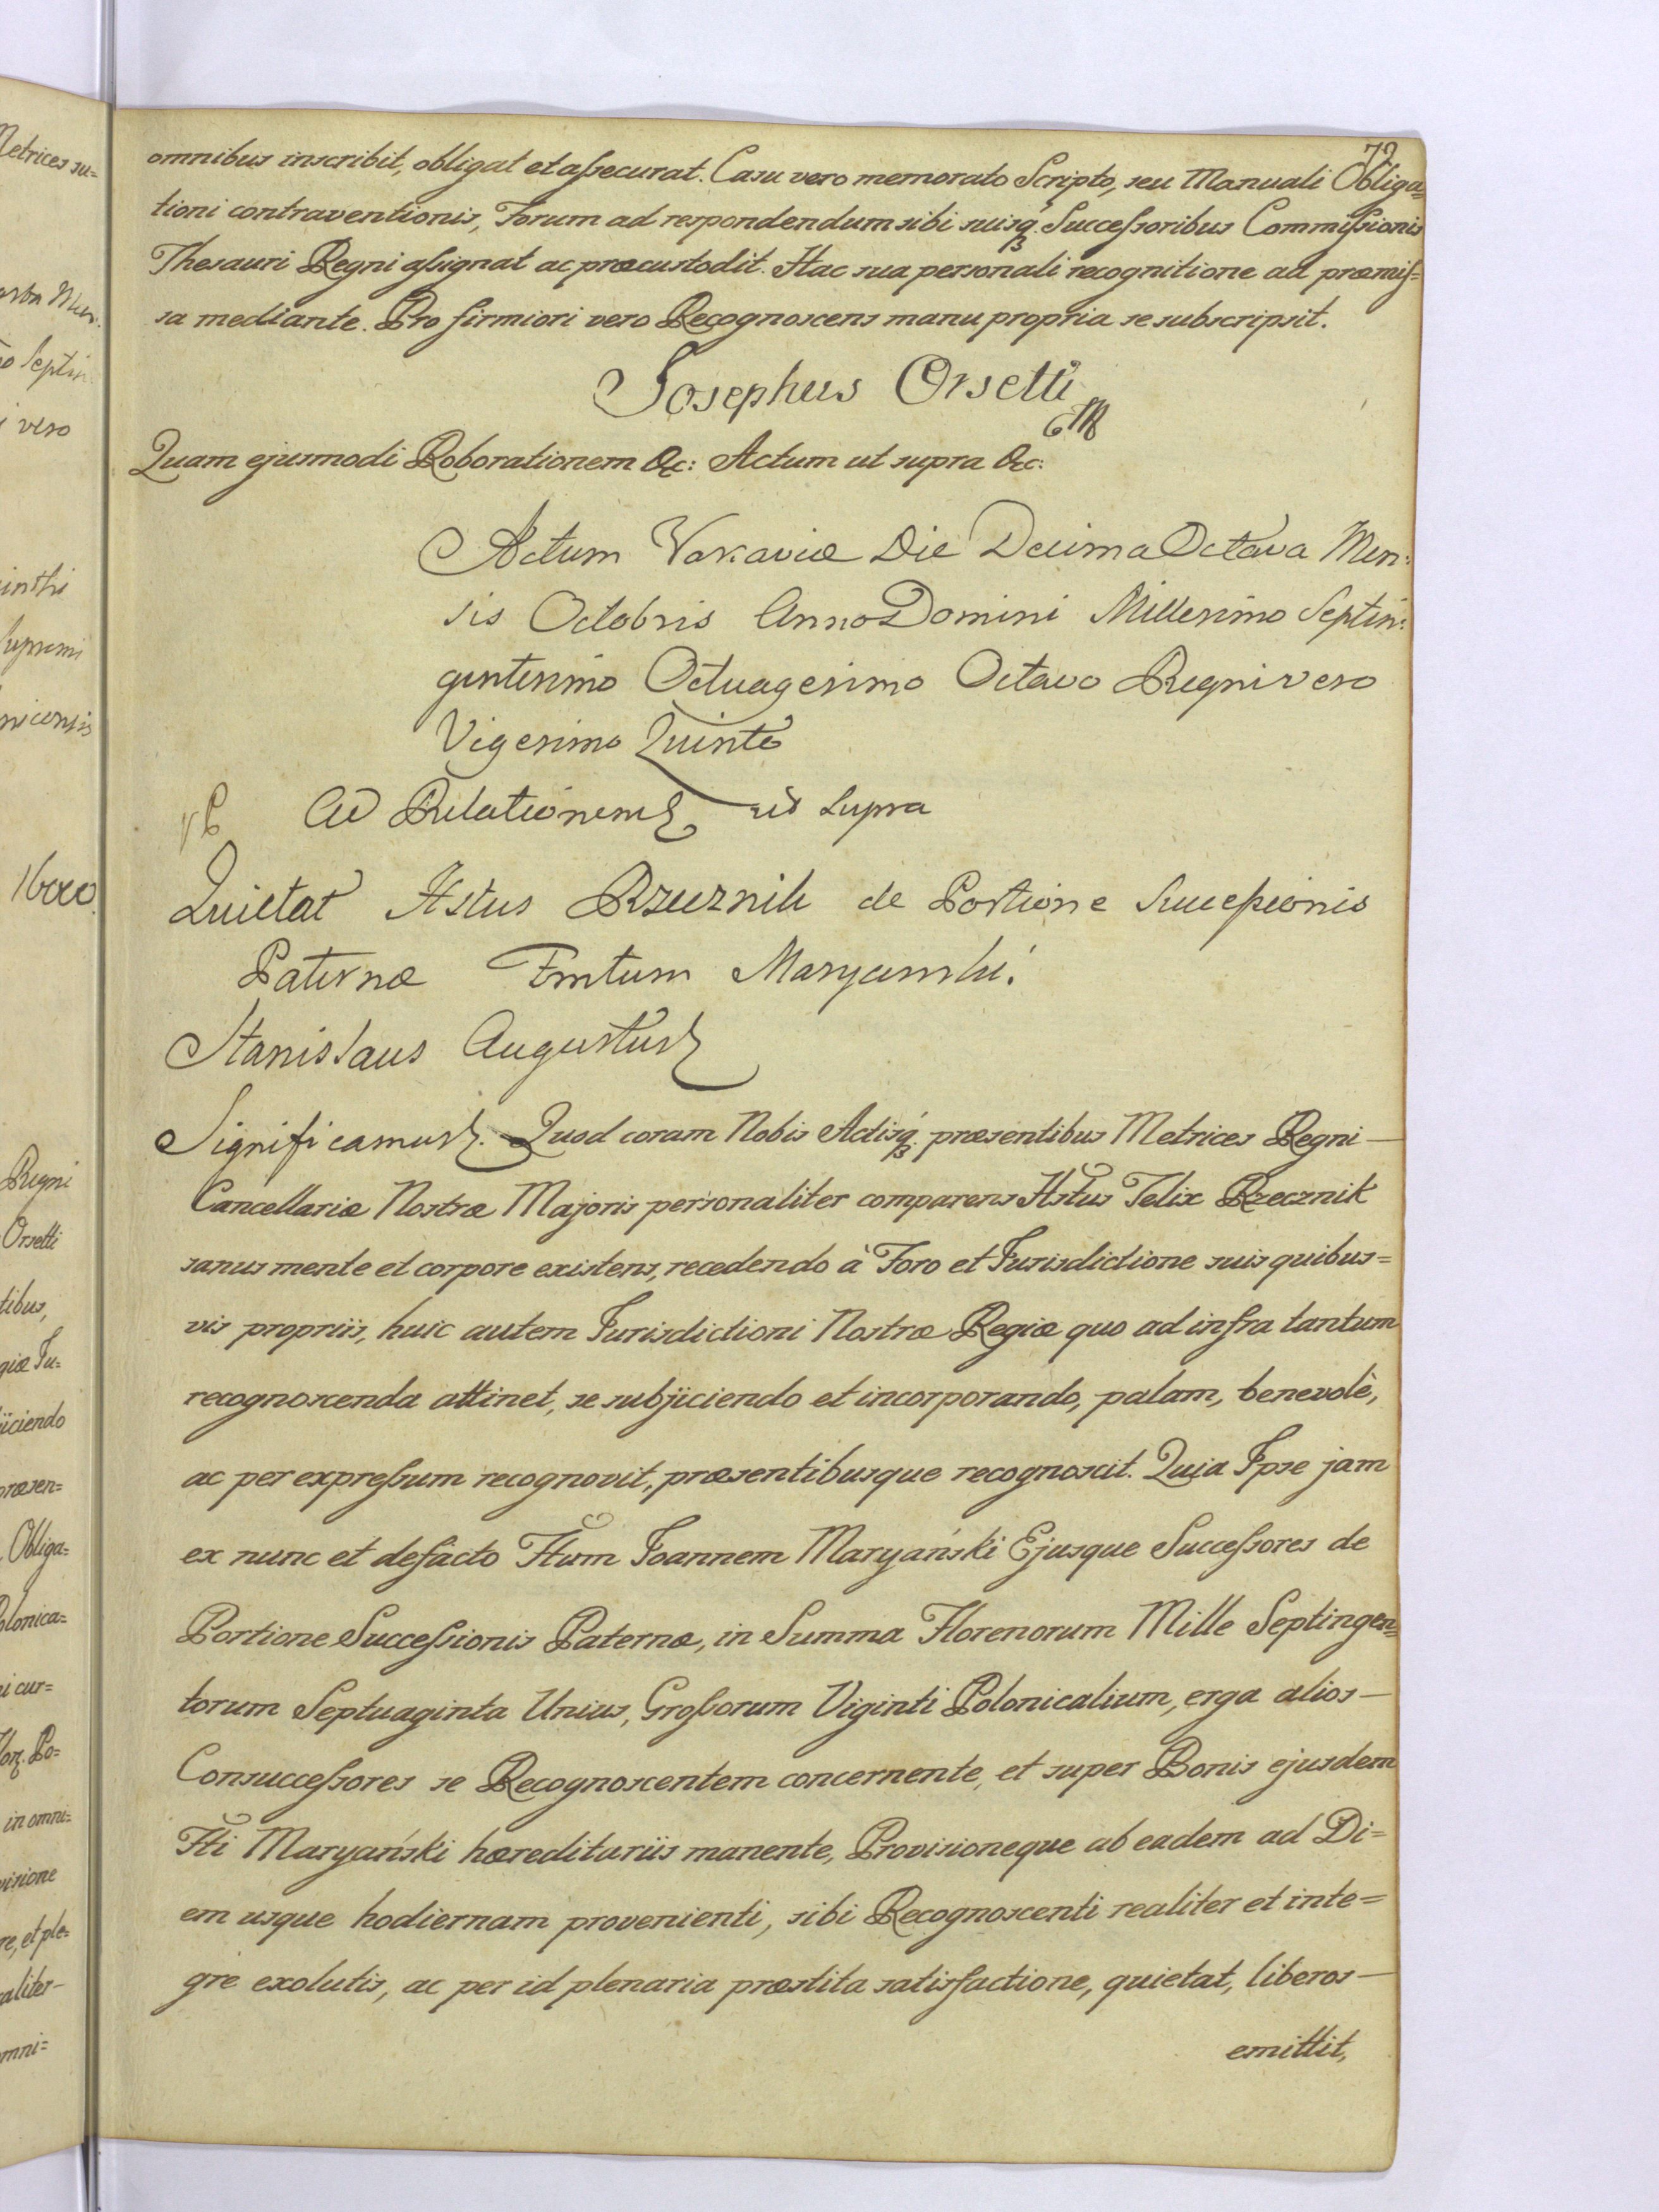 72
omnibus inscribit, obligat et aſsecurat. Casu vero memorato Scripto, seu Manuali Obliga=
tioni contraventionis, Forum ad respondendum sibi suisq; Succeſsoribus Commiſsionis
Thesauri Regni aſsignat ac præcustodit. Hac sua personali recognitione ad præmiſ=
sa mediante. Pro firmiori vero Recognoscens manu propria se subscripsit.
Josephus Orsetti
Quam ejusmodi Roborationem &c: Actum ut supra &c:
Actum Varsaviæ Die Decima Octava Men:
sis Octobris Anno Domini Millesimo Septin:
gentesimo Octuagesimo Octavo Regni vero
Vigesimo Quinto
Ad Relationem ut supra
Quietat Hstus Rzecznik de Portione Succeſsionis
Paternæ Fmtum Maryanski.
Stanislaus Augustus
Significamus. Quod coram Nobis Actisq; præsentibus Metrices Regni —
Cancellariæ Nostræ Majoris personaliter comparens Hstus Felix Rzecznik
sanus mente et corpore existens, recedendo à Foro et Jurisdictione suis quibus=
vis propriis, huic autem Jurisdictioni Nostræ Regiæ quo ad infra tantum
recognoscenda attinet, se subjiciendo et incorporando, palam, benevolè,
ac per expreſsum recognovit, præsentibusque recognoscit. Quia Ipse jam
ex nunc et defacto Htum Joannem Maryański Ejusque Succeſsores de
Portione Succeſsionis Paternæ, in Summa Florenorum Mille Septingen=
torum Septuaginta Unius, Groſsorum Viginti Polonicalium, erga alios —
Consucceſsores se Recognoscentem concernente, et super Bonis ejusdem
Hti Maryański hæreditariis manente, Provisioneque ab eadem ad Di=
em usque hodiernam provenienti, sibi Recognoscenti realiter et inte=
gre exolutis, ac per id plenaria præstita satisfactione, quietat, liberos —
emittit,